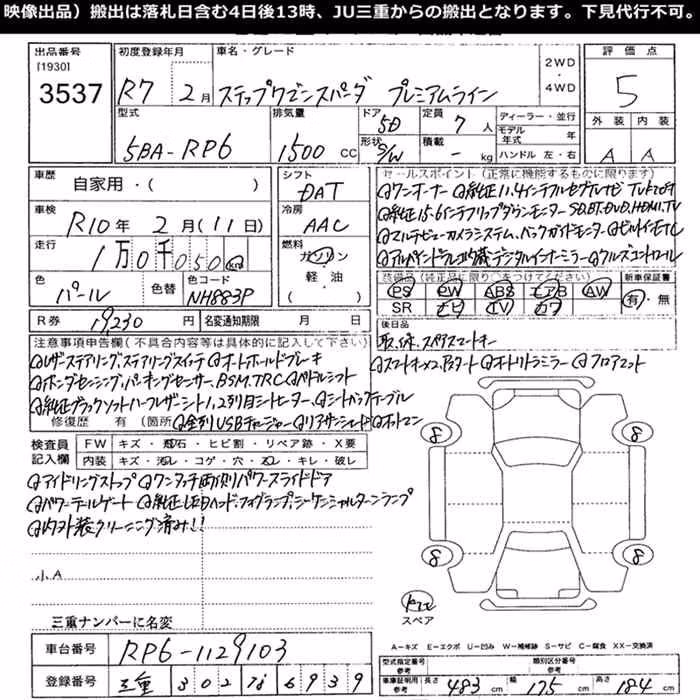 映像出品）搬出は落札日含む4日後13時、JU三重からの搬出となります。下見代行不可。
出品番号 初度登録年月 車名・グレード 2WD 評価点
[1930]
3537 R7 2月 ステップワゴンスパーダ プレミアムライン ・4WD 5
型式 排気量 ドア 5D 定員 7人 ディーラー・並行 外装 内装
5BA-RP6 1500 CC 形状 S/W 積載 - kg モデル年式 年 A A
ハンドル 左・右
車歴 自家用・( ) シフト DAT セールスポイント（正常に機能するものに限ります）
@ワンオーナー @純正11.4インチフルセグナビ
車検 R10年 2月(11日) 冷房 AAC @純正15.6インチリップダウンモニター SD,BT,DVD,HDMI,TV
@マルチビューカメラシステム、バックガイドモニター @ビルトインETC
走行 1万0千050km 燃料 ガソリン・軽油 ( ) @アルパインドラレコ内蔵デジタルインナーミラー @クルーズコントロール
装備品（純正品に限り〇をつけてください） 新車保証書
色 パール 色替 色コード NH883P PS PW ABS エアB AW 有・無
SR ナビ TV カワ
R券 19230円 名変通知期限 月 日 後日品
取、保、スペアスマートキー
注意事項申告欄(不具合内容等は具体的に記入して下さい) @スマートキー×2、Pスタート @オートリトラミラー @フロアマット
@レザーステアリング,ステアリングスイッチ @オートホールドブレーキ
@ホンダセンシング,パーキングセンサー,BSM,TRC @パドルシフト
@純正ブラックソフトハーフレザーシート,1,2列目シートヒーター,@シートバックテーブル
修復歴 有 (箇所 @全列USBチャージャー @リアサンシェード @オットマン
検査員記入欄 FW キズ・飛石・ヒビ割・リペア跡・X要
内装 キズ・汚レ・コゲ・穴・ズレ・キレ・破レ
@アイドリングストップ @ワンタッチ両側パワースライドドア
@パワーテールゲート @純正LEDヘッド,フォグランプ,シーケンシャルターンランプ
@内外装クリーニング済み!!
8 8
8 8
小A
スペア
三重ナンバーに名変
A－キズ E－エクボ U－凹み W－補修跡 S－サビ C－腐食 XX－交換済
車台番号 RP6-1129103 型式指定番号 参考 類別区分番号 参考
登録番号 三重 302 な 6939 車庫証明用 参考 長さ 483 cm 幅 175 cm 高さ 184 cm